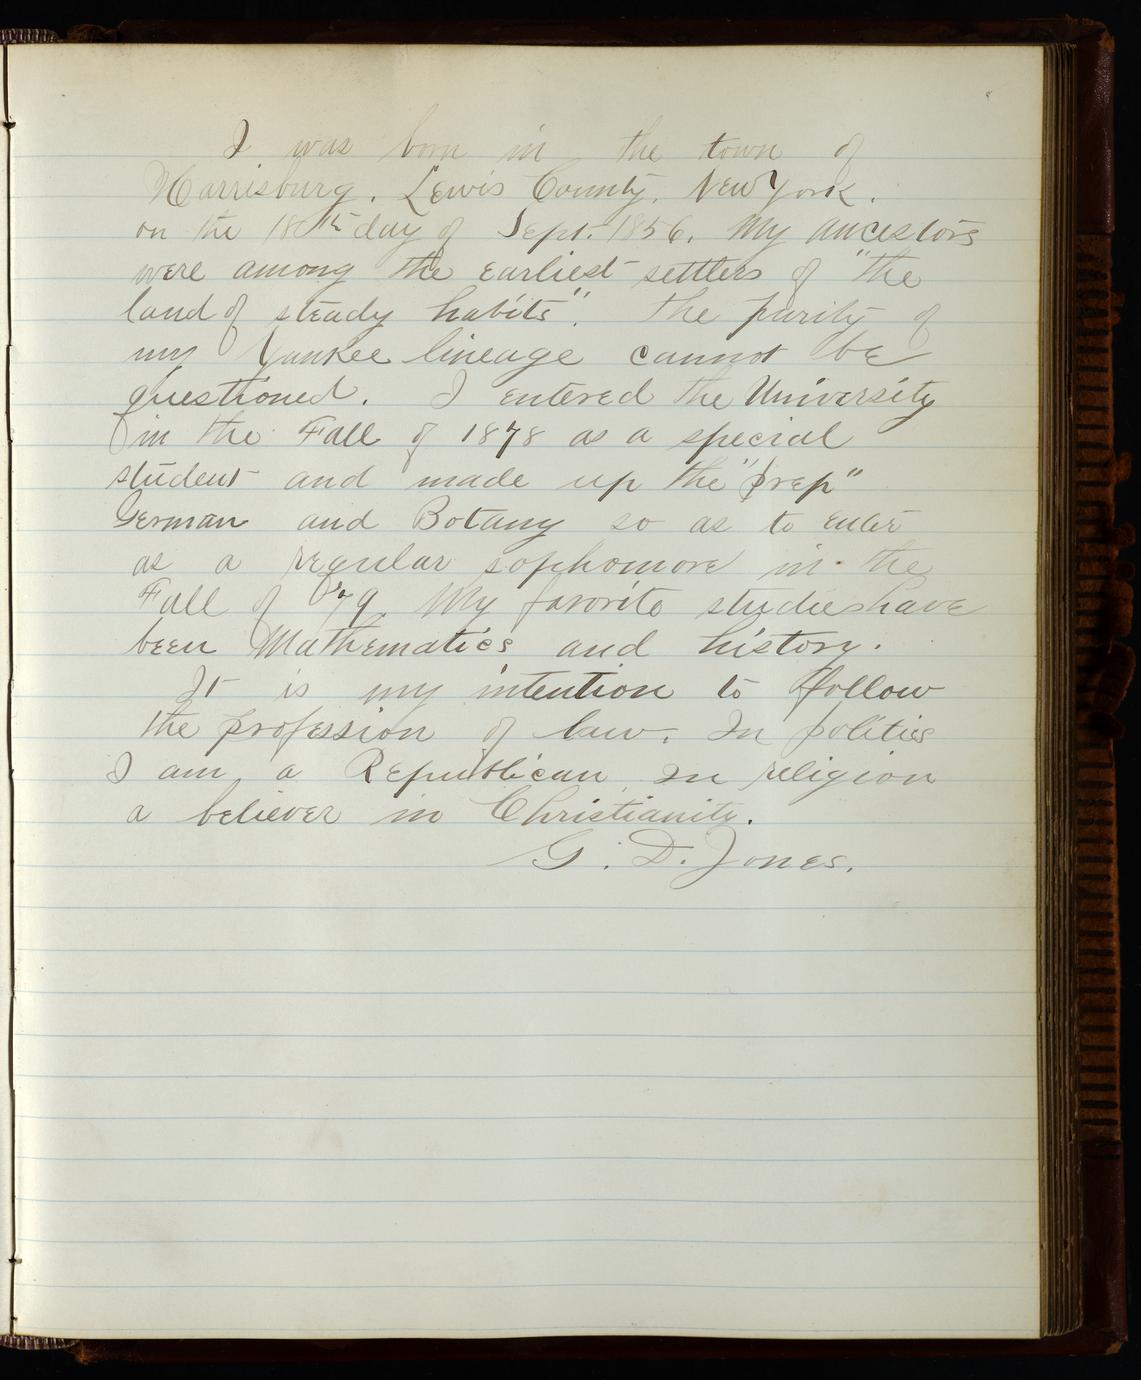 I was born in the town of
Harrisburg, Lewis County, New York.
on the 18th day of Sept. 1856. My ancestors
were among the earliest settlers of "the
land of steady habits". The purity of
my Yankee lineage cannot be
questioned. I entered the University
in the Fall of 1878 as a special
student and made up the "prep"
German and Botany so as to enter
as a regular sophomore in the
Fall of '79. My favorite studies have
been Mathematics and history.
It is my intention to follow
the profession of law. In politics
I am a Republican, in religion
a believer in Christianity.
G. D. Jones.